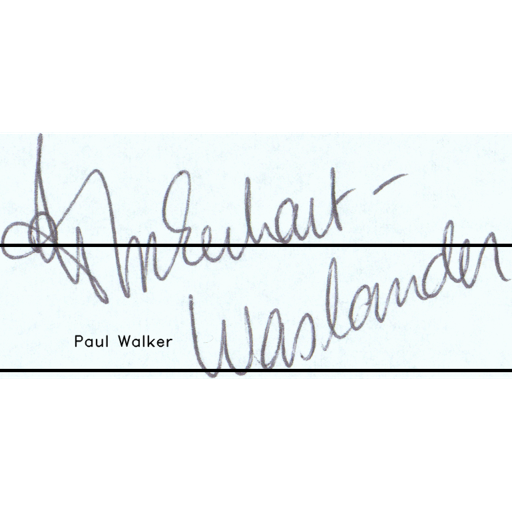 Everhart -
Waslander
Paul Walker